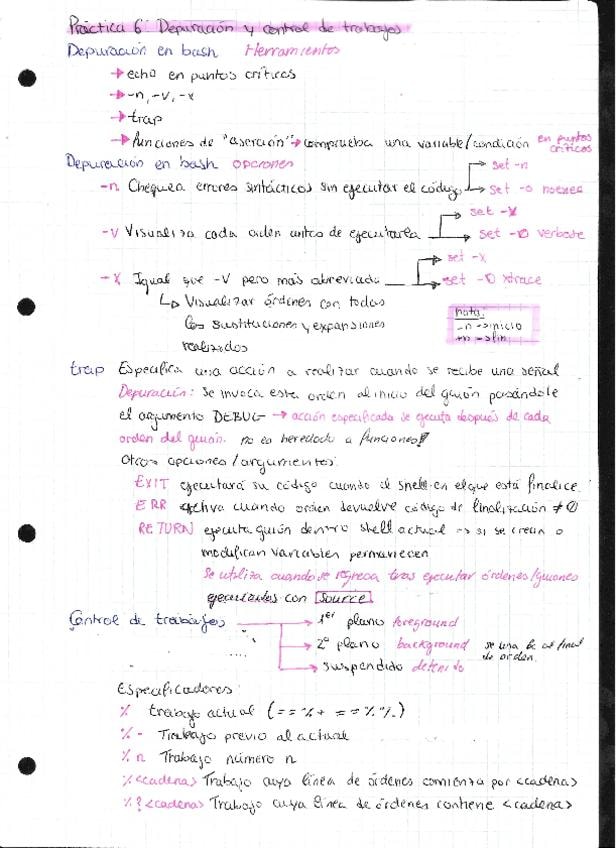 Práctica 6: Depuración y control de trabajos
Depuración en bash Herramientas
→ echo en puntos críticos
→ -n, -v, -x
→ trap
→ funciones de "aserción" → comprueba una variable/condición en puntos críticos
Depuración en bash opciones
-n Chequea errores sintácticos sin ejecutar el código → set -n
→ set -o noexec
-v Visualiza cada orden antes de ejecutarla → set -v
→ set -o verbose
-x Igual que -v pero más abreviado → set -x
→ set -o xtrace
↳ Visualizar órdenes con todas
las sustituciones y expansiones
realizadas
nota:
-n → inicio
+n → fin
trap Especifica una acción a realizar cuando se recibe una señal
Depuración: Se invoca esta orden al inicio del guión pasándole
el argumento DEBUG → acción especificada se ejecuta después de cada
orden del guión. no es heredado a funciones!
Otras opciones/argumentos:
EXIT ejecutará su código cuando el shell en el que está finalice.
ERR activa cuando orden devuelve código de finalización ≠ 0
RETURN ejecuta guión dentro shell actual → si se crean o
modifican variables permanecen
Se utiliza cuando se regresa tras ejecutar órdenes/guiones
ejecutados con source
Control de trabajos → 1er plano foreground
→ 2º plano background se usa & al final de orden.
→ suspendido detenido
Especificadores:
% trabajo actual (== %+ == %%)
%- Trabajo previo al actual
%n Trabajo número n
%<cadena> Trabajo cuya línea de órdenes comienza por <cadena>
%?<cadena> Trabajo cuya línea de órdenes contiene <cadena>